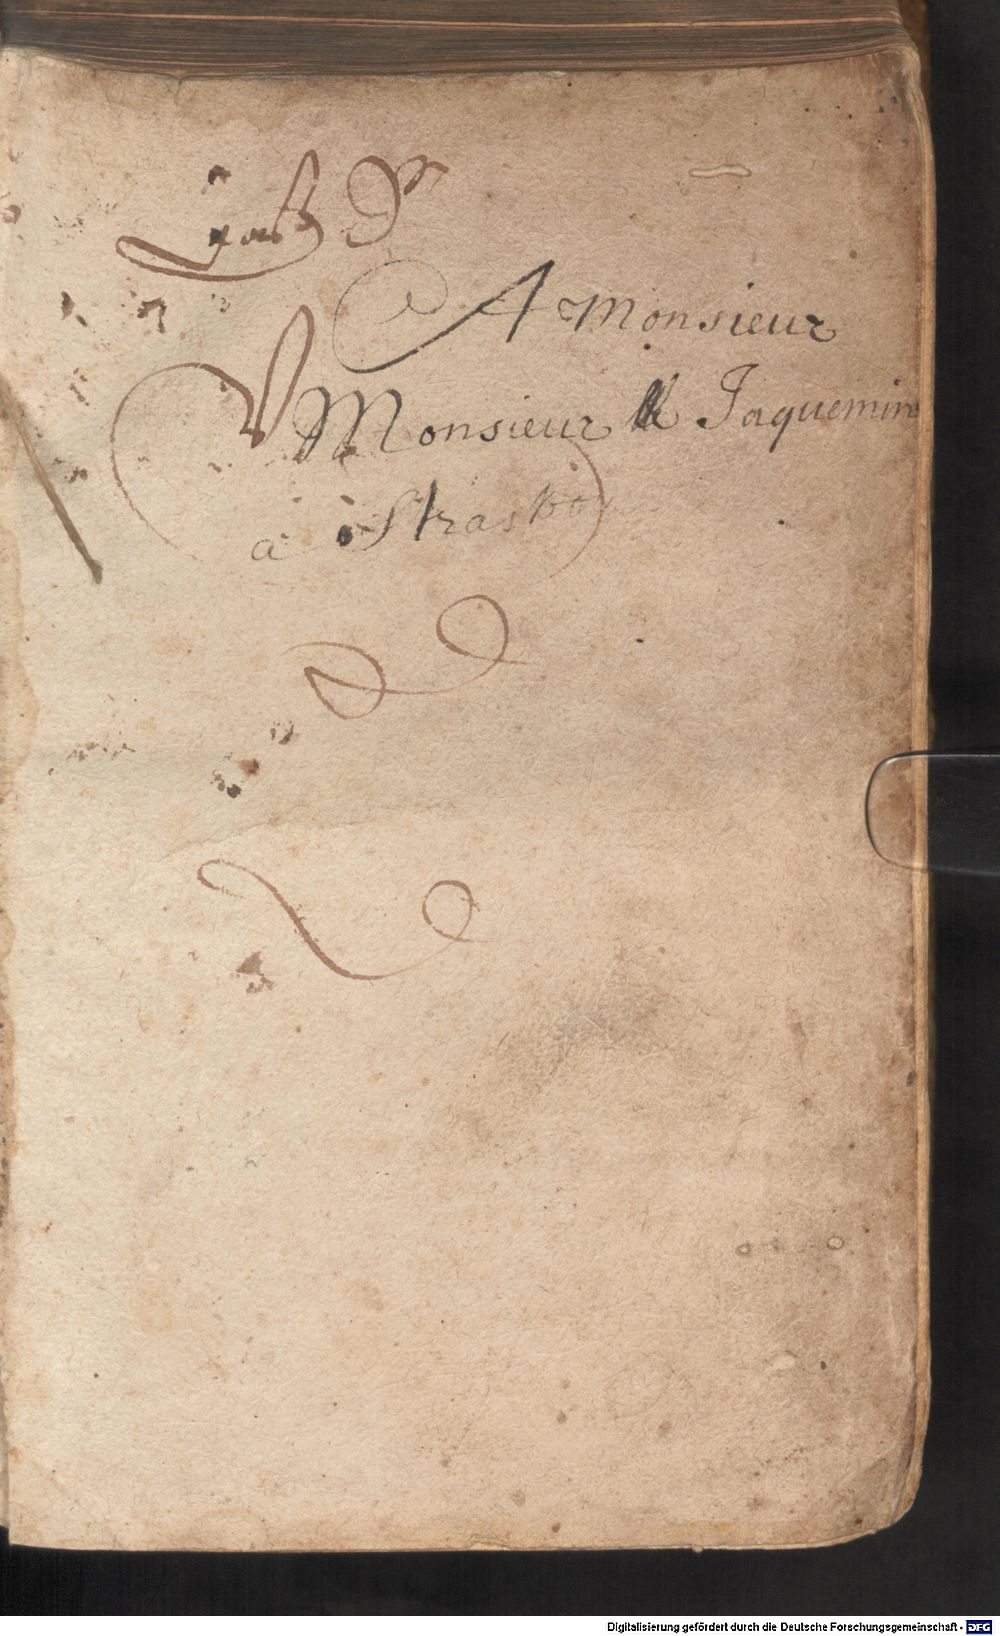 A Monsieur
Monsieur Jaquemin
a Strasbo
Digitalisierung gefördert durch die Deutsche Forschungsgemeinschaft - DFG